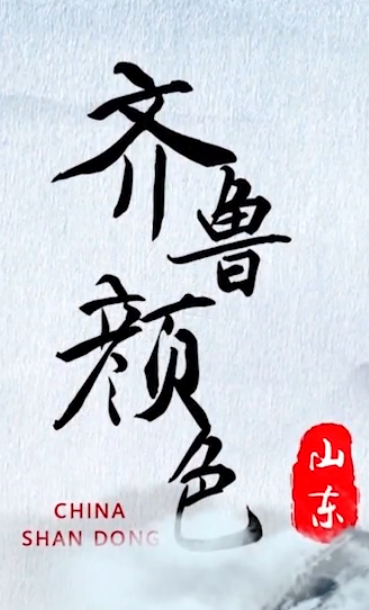 齐鲁
颜色
山东
CHINA
SHAN DONG